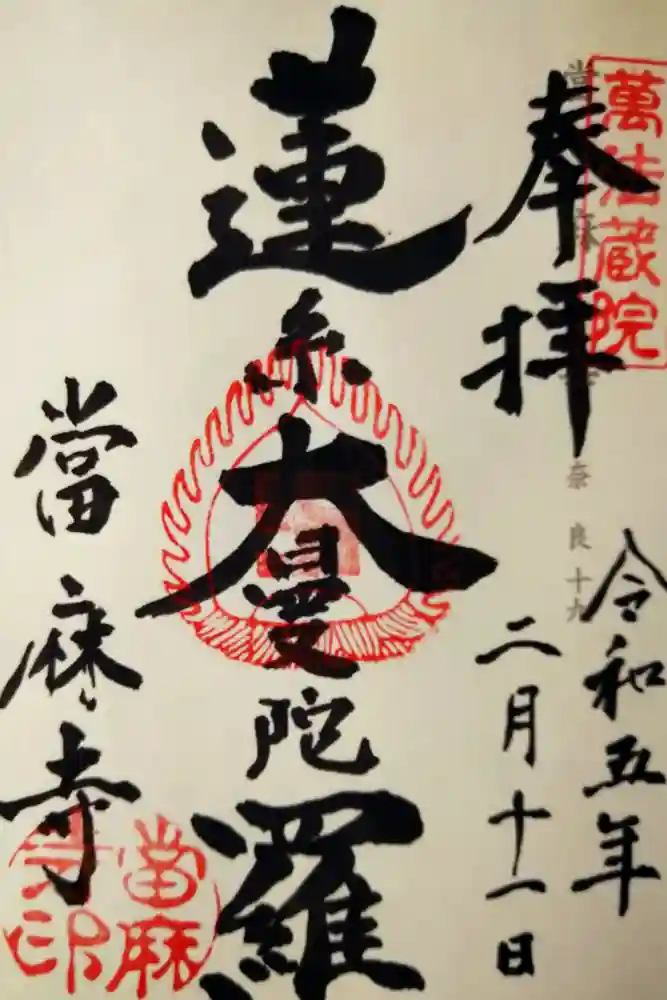 萬法蔵院
奉拝
奈良十九
令和五年
二月十一日
蓮糸大曼陀羅
當麻寺
當麻
寺印